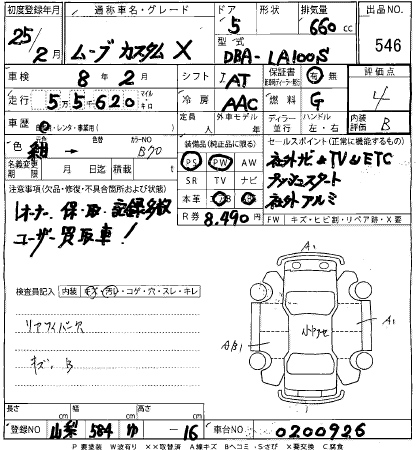 初度登録年月 通称車名・グレード ドア 形状 排気量 出品NO
25/2月 ムーブ カスタム X 5 660cc 546
型式 DBA-LA100S
車検 8年2月 シフト IAT 保証書 有 無 評価点 4
走行 55,620 マイル キロ 冷房 AAC 燃料 G
車歴 自家・レンタ・事業用( ) 定員 人 外車モデル 年 ディーラー 並行 ハンドル 左・右 内装評価 B
色 紺 カラーNO B70
名義変更期限 月 日 積載 t
装備品(純正品に限る) セールスポイント(正常に機能するもの)
PS PW AW 社外ナビ&TV&ETC
SR TV ナビ プッシュスタート
本革 エアB 社外アルミ
R券 8,490円 FW キズ・ヒビ割・リペア跡・X要
注意事項(欠品・修復・不具合箇所および状態)
1オーナー、保・取・記録多数
ユーザー買取車!
検査員記入 内装 キズ・汚レ・コゲ・穴・スレ・キレ
リアフィバー穴
キズ・B
A1
AB1
A1
小アセ
長さ cm 幅 cm 高さ cm
登録NO 山梨 584 ゆ -16 車台NO 0200926
P 要塗装 W波有り ××取替済 A線キズ Bヘコミ・Sさび X要交換 C腐食